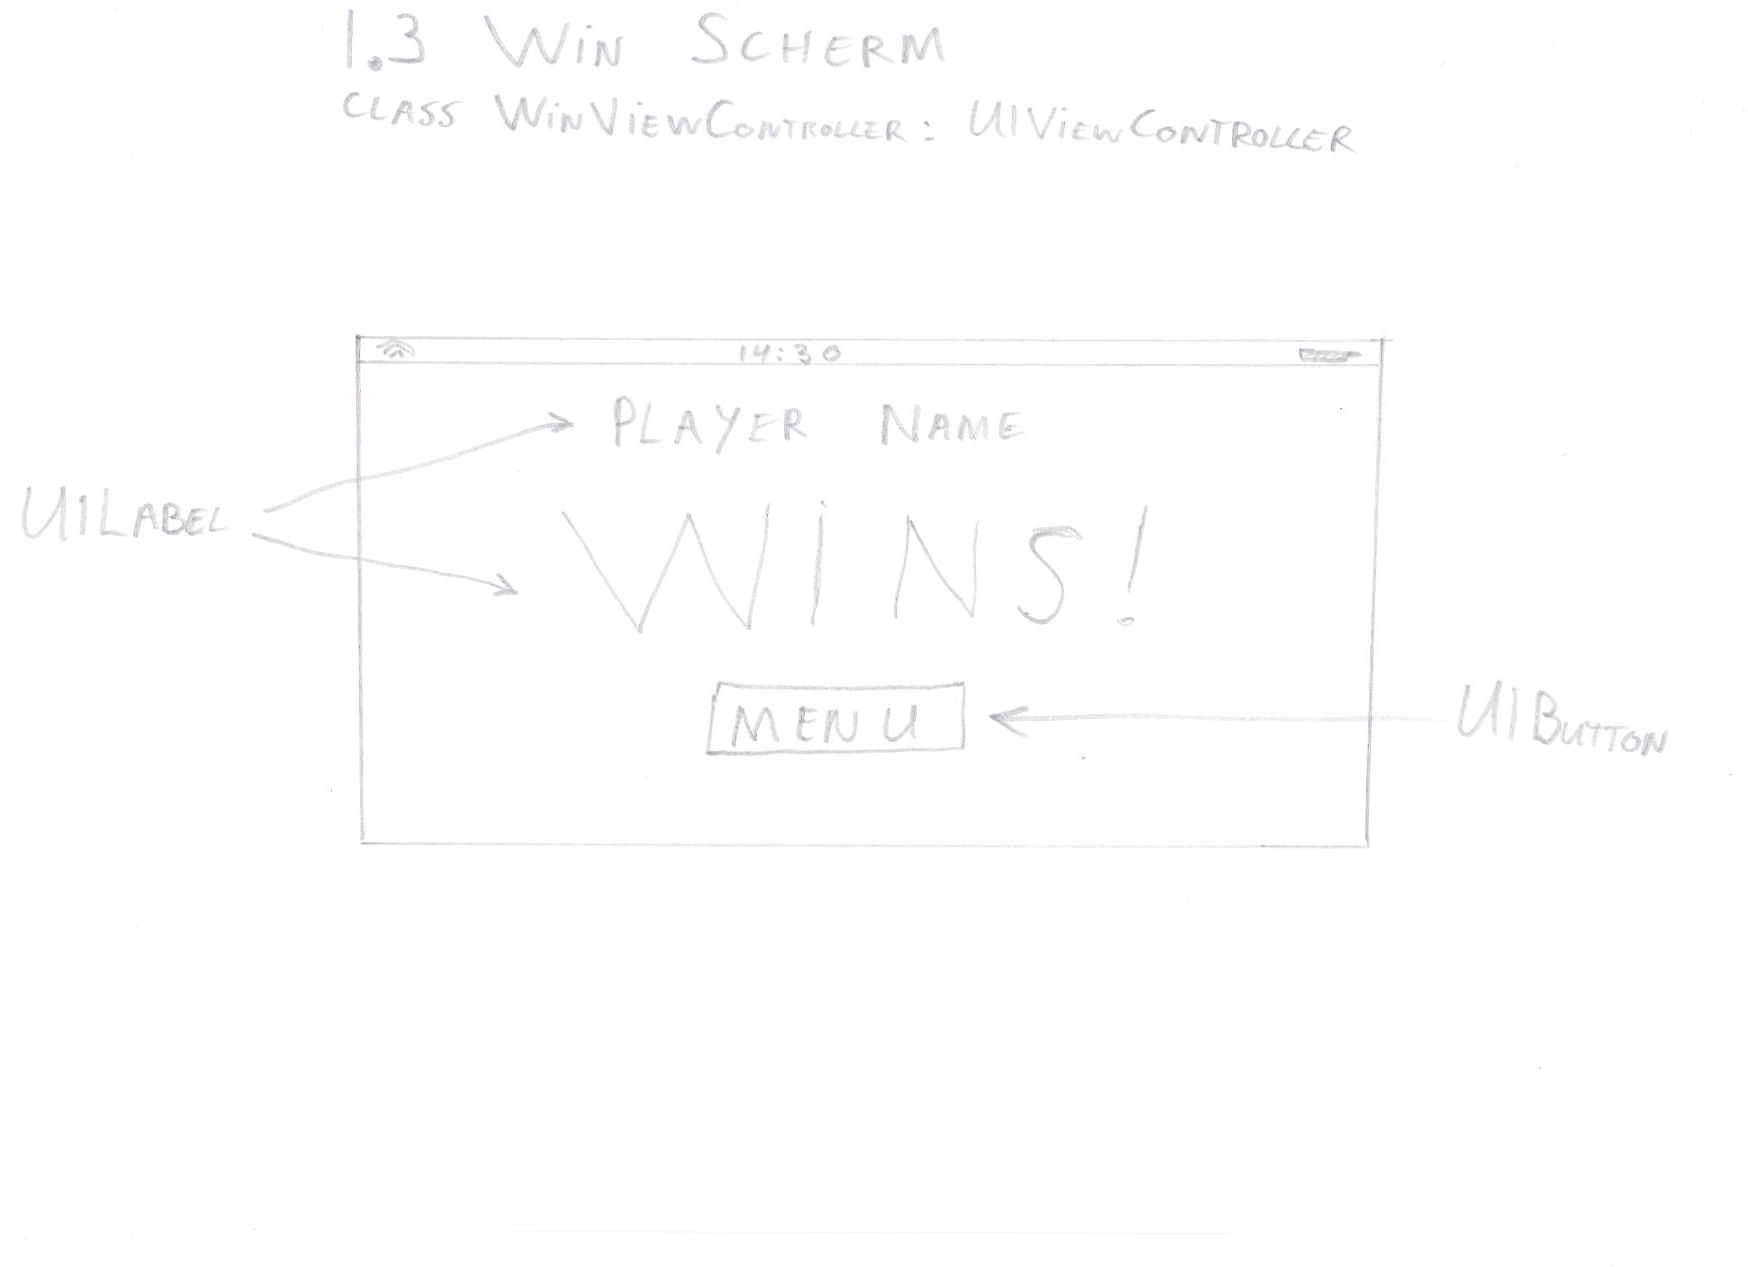 1.3 Win Scherm
class WinViewController: UIViewController
14:30
Player Name
UILabel
WINS!
MENU
UIButton